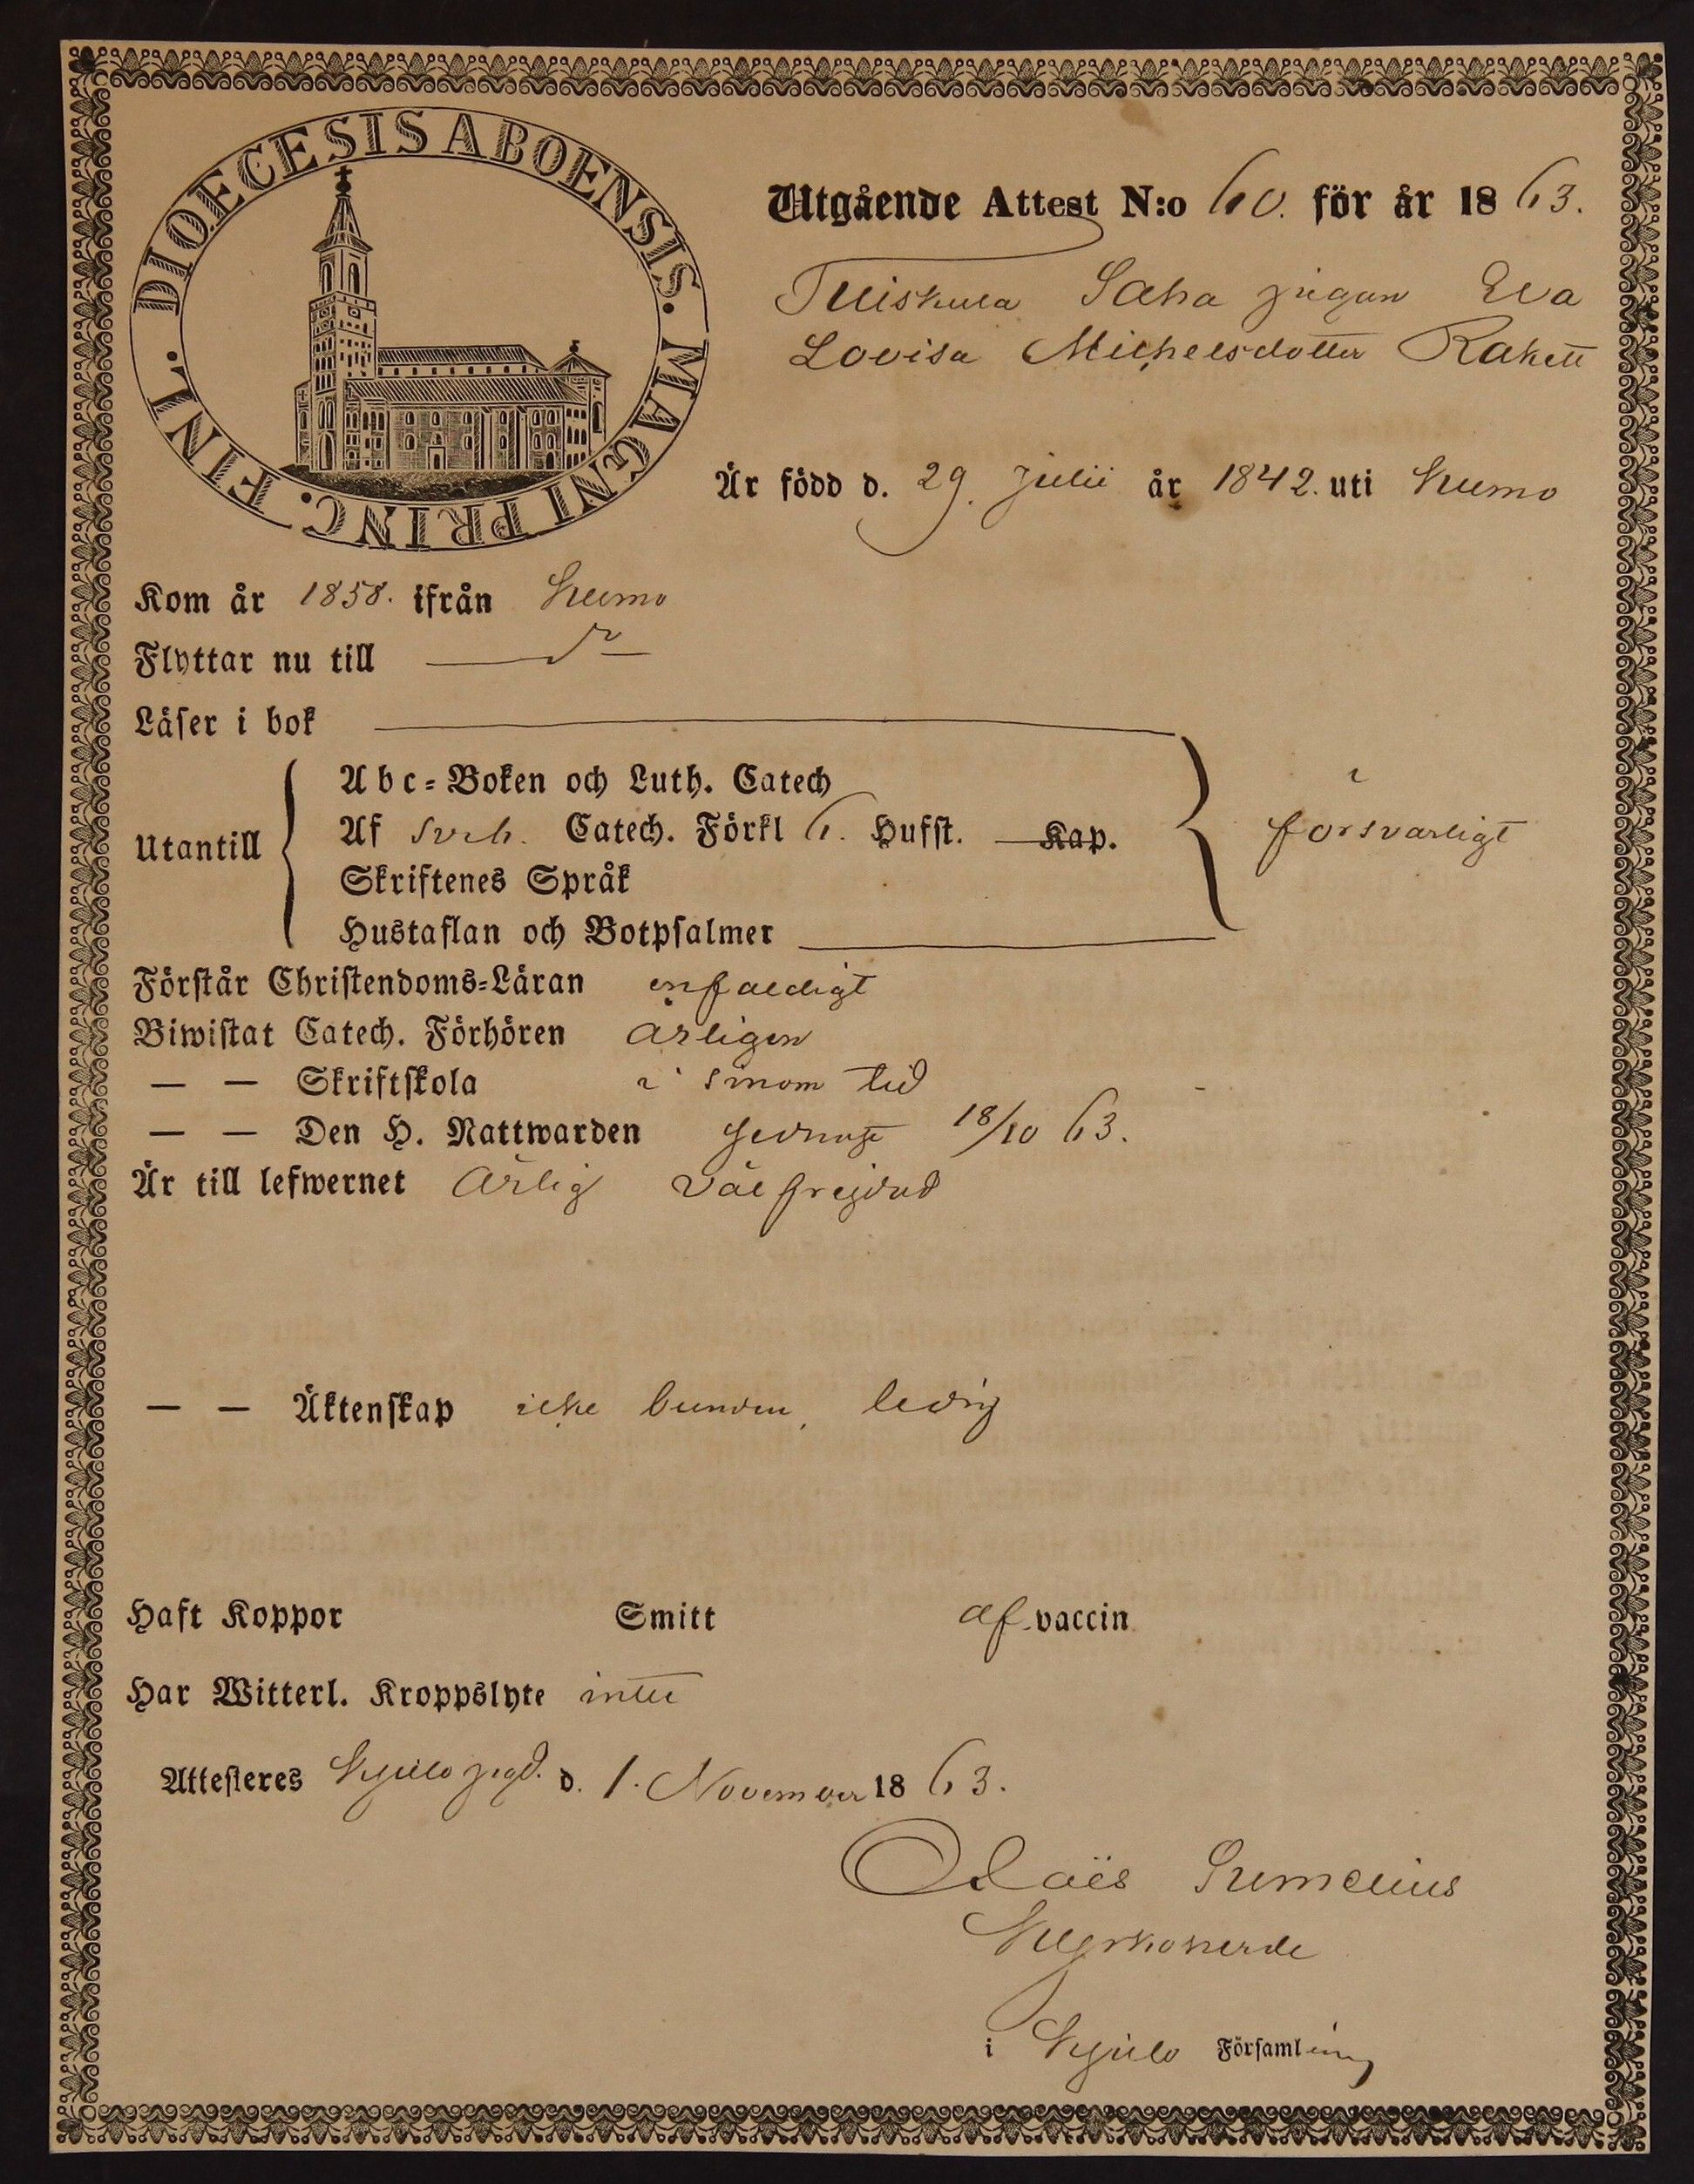 DIOECESIS ABOENSIS. MAGNI PRINC. FINL.
Utgående Attest N:o 60. för år 1863.
Tuiskula Saha pigan Eva
Lovisa Michelsdotter Rakett
Är född d. 29. Julii år 1842. uti Kumo
Kom år 1858. ifrån Kumo
Flyttar nu till — do —
Läser i bok
Abc-Boken och Luth. Catech
Utantill
Af Sveb. Catech. Förkl 6. Hufst. Kap.
försvarligt
Skriftenes Språk
Hustaflan och Botpsalmer
Förstår Christendoms-Läran enfaldigt
Biwistat Catech. Förhören årligen
— — Skriftskola i sinom tid
— — Den H. Nattwarden sednast 18/10 63.
Är till lefwernet Ärlig välfrejdad
— — Äktenskap icke bunden, ledig
Haft Koppor Smitt af vaccin
Har Witterl. Kroppslyte intet
Attesteres Kjulo pgd. d. 1. November 1863.
Kyrkoherde
i Kjulo Församling